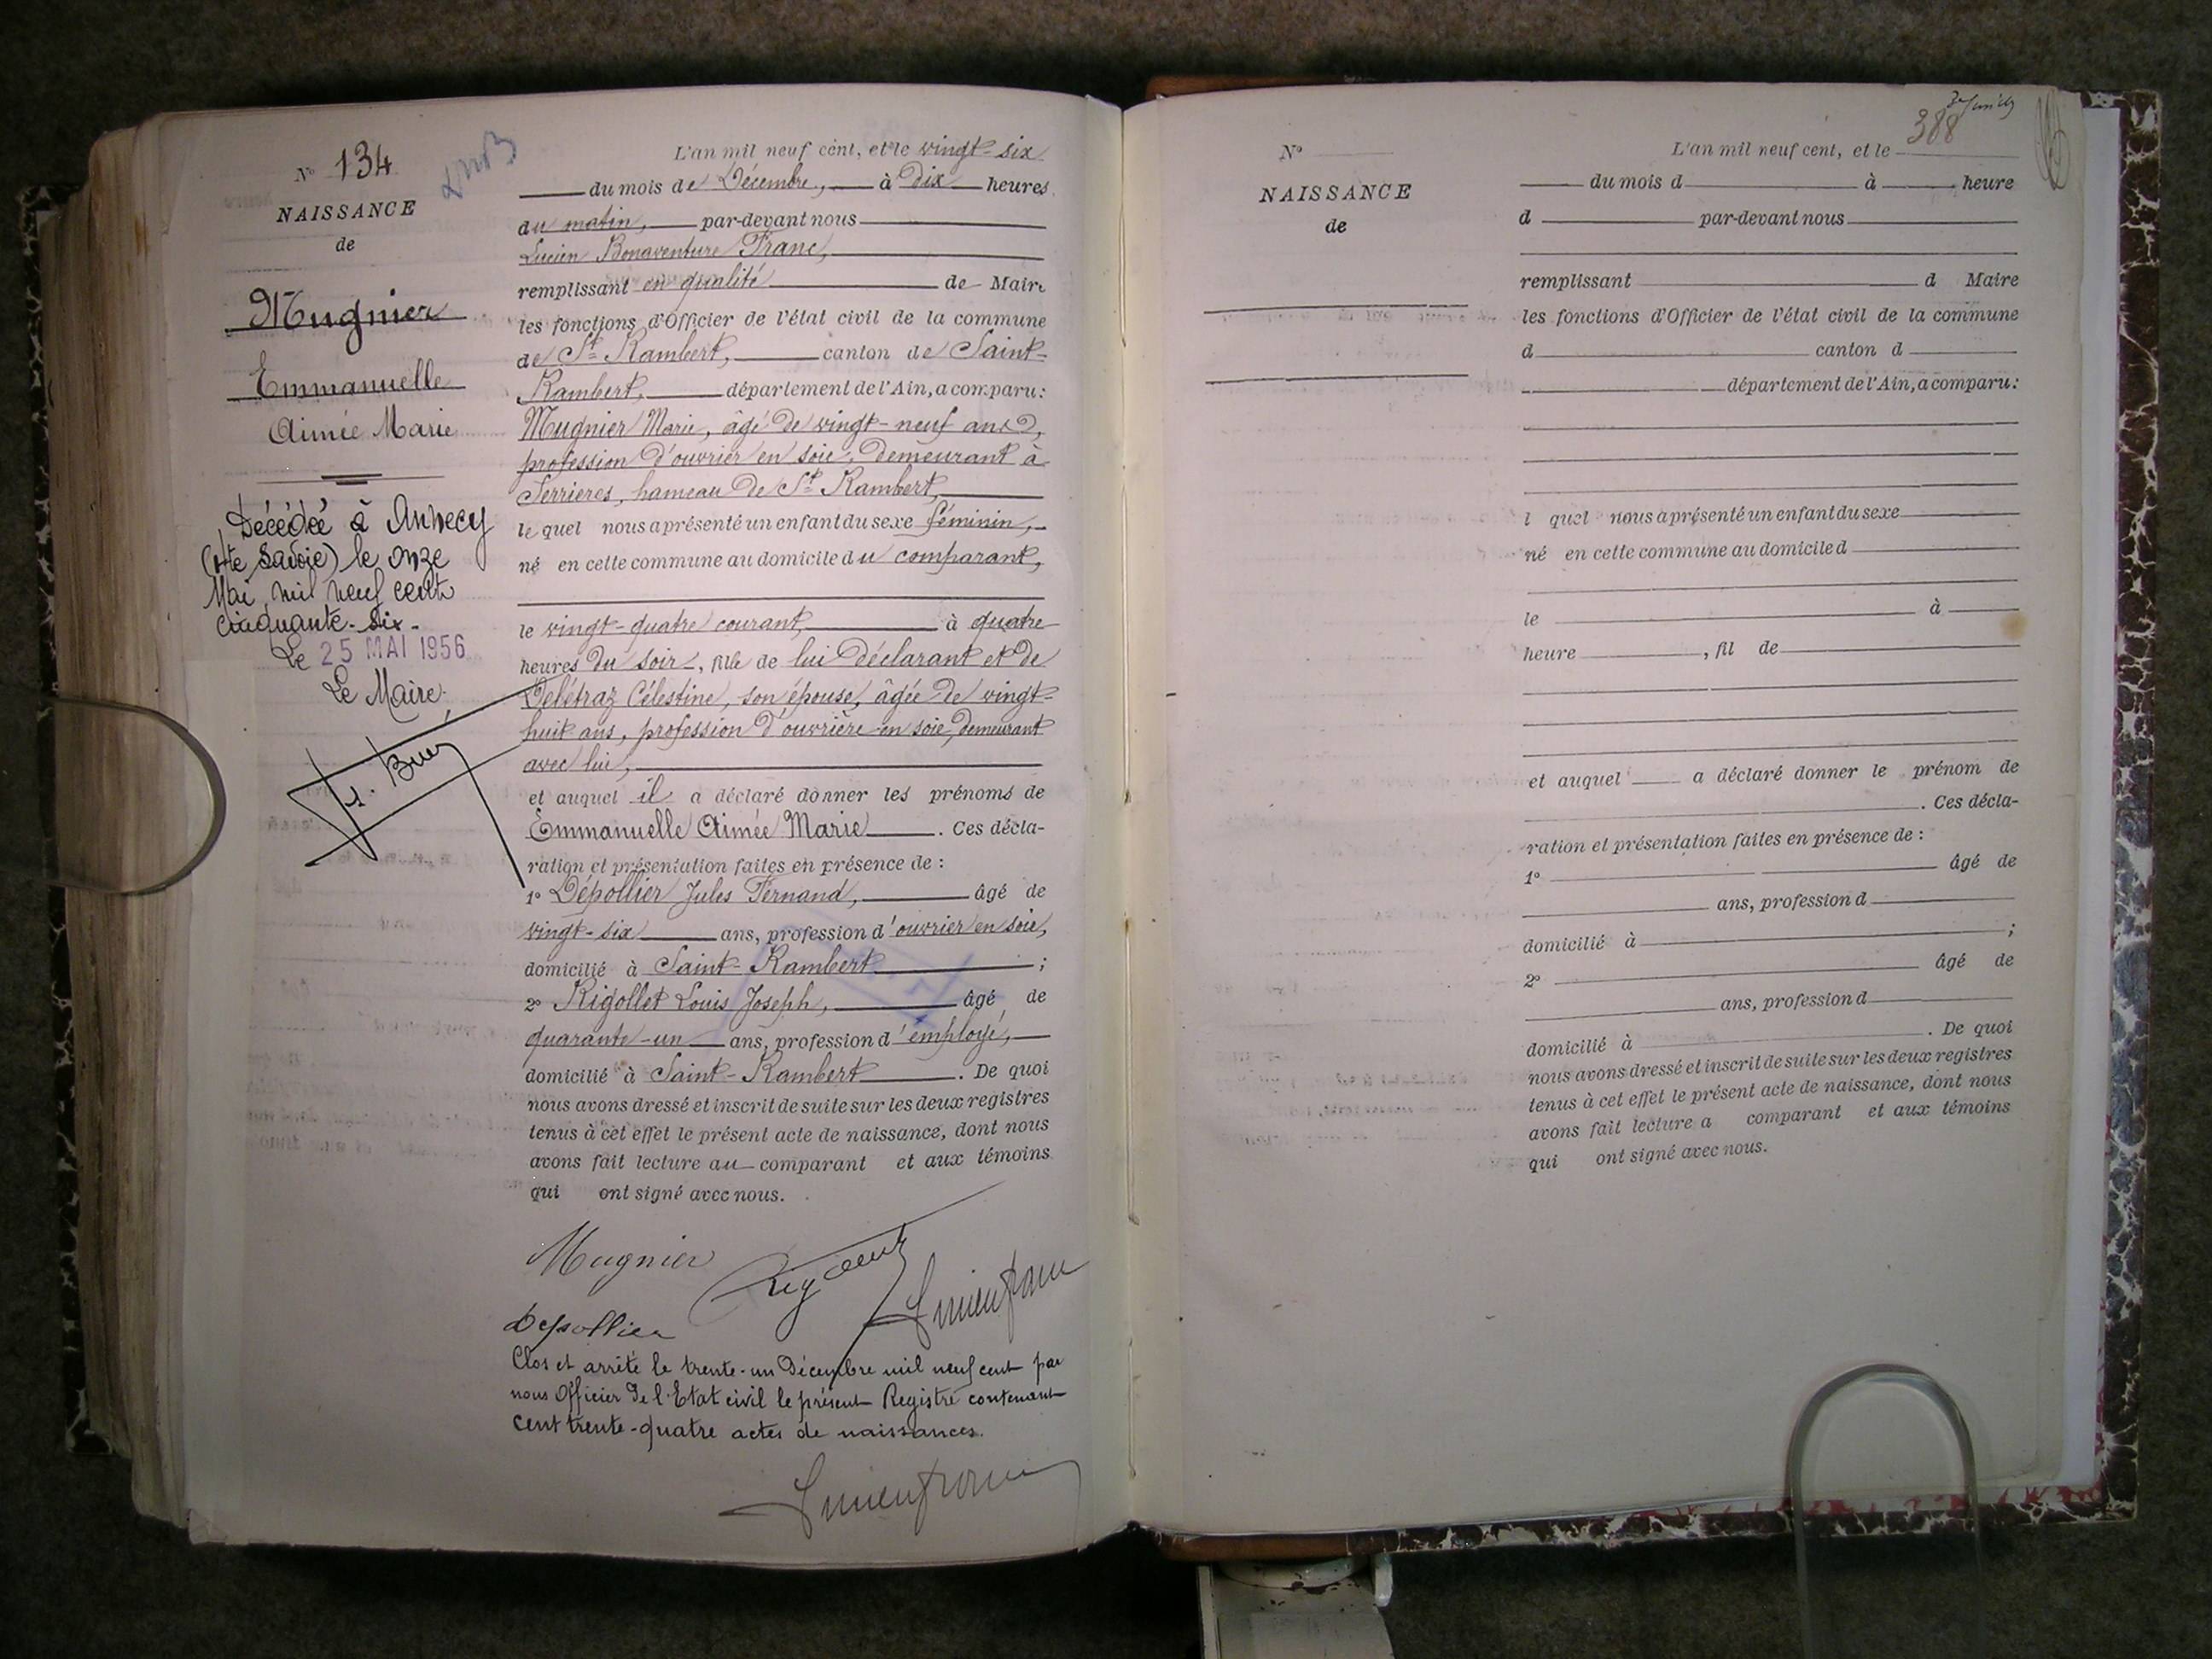 N° 134
NAISSANCE
de
Mugnier
Emmanuelle
Aimée Marie
Décédée à Annecy
(Hte Savoie) le onze
Mai mil neuf cent
cinquante-six.
Le 25 MAI 1956
Le Maire.
L'an mil neuf cent, et le vingt-six
du mois de Décembre, à Dix heures
du matin, par-devant nous
Lucien Bonaventure Franc,
remplissant en qualité de Maire
les fonctions d'Officier de l'état civil de la commune
de St Rambert, canton de Saint-
Rambert, département de l'Ain, a comparu:
Mugnier Marie, âgé de vingt-neuf ans,
profession d'ouvrier en soie, demeurant à
Serrières, hameau de St Rambert,
lequel nous a présenté un enfant du sexe féminin,
né en cette commune au domicile du comparant,
le vingt-quatre courant, à quatre
heures du soir, fille de lui déclarant et de
Delétraz Célestine, son épouse, âgée de vingt-
huit ans, profession d'ouvrière en soie, demeurant
avec lui,
et auquel il a déclaré donner les prénoms de
Emmanuelle Aimée Marie. Ces décla-
ration et présentation faites en présence de :
1° Dépollier Jules Fernand, âgé de
vingt-six ans, profession d'ouvrier en soie,
domicilié à Saint-Rambert ;
2° Rigollet Louis Joseph, âgé de
quarante-un ans, profession d'employé,
domicilié à Saint-Rambert. De quoi
nous avons dressé et inscrit de suite sur les deux registres
tenus à cet effet le présent acte de naissance, dont nous
avons fait lecture au comparant et aux témoins
qui ont signé avec nous.
Mugnier
Depollier
Clos et arrêté le trente-un Décembre mil neuf cent par
nous Officier de l'Etat civil le présent Registre contenant
cent trente-quatre actes de naissances.
388
N°
NAISSANCE
de
L'an mil neuf cent, et le
du mois d à heure
d par-devant nous
remplissant d Maire
les fonctions d'Officier de l'état civil de la commune
d canton d
département de l'Ain, a comparu:
l quel nous a présenté un enfant du sexe
né en cette commune au domicile d
le à
heure , fil de
et auquel a déclaré donner le prénom de
. Ces décla-
ration et présentation faites en présence de :
1° âgé de
ans, profession d
domicilié à ;
2° âgé de
ans, profession d
domicilié à . De quoi
nous avons dressé et inscrit de suite sur les deux registres
tenus à cet effet le présent acte de naissance, dont nous
avons fait lecture a comparant et aux témoins
qui ont signé avec nous.